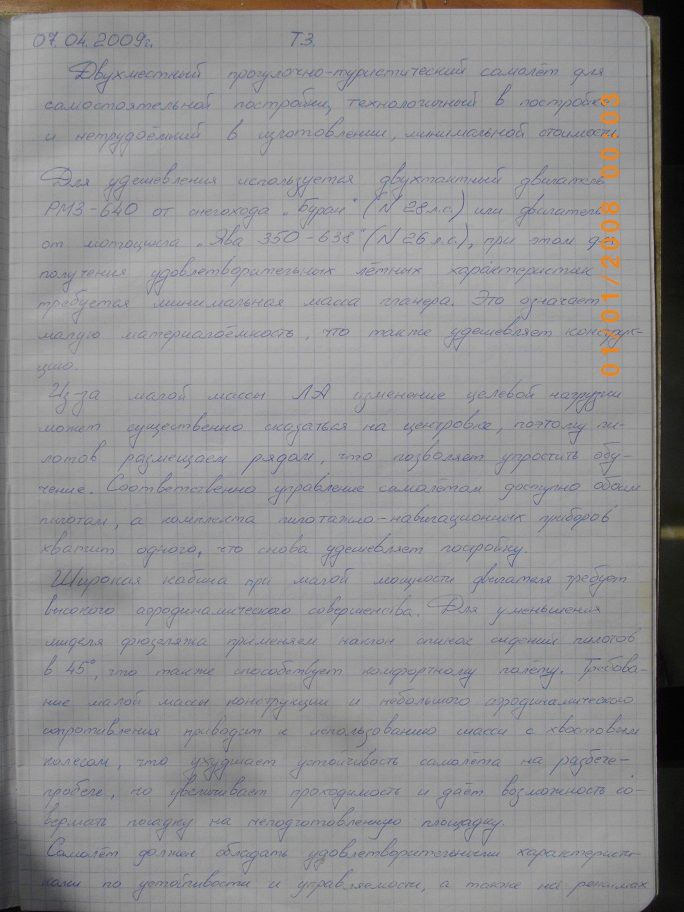 07.04.2009г. ТЗ.
Двухместный прогулочно-туристический самолёт для
самостоятельной постройки, технологичный в постройке
и нетрудоёмкий в изготовлении, минимальной стоимости.
Для удешевления используется двухтактный двигатель
РМЗ-640 от снегохода „Буран" (N 28 л.с.) или двигатель
от мотоцикла „Ява 350-638" (N 26 л.с.), при этом для
получения удовлетворительных лётных характеристик
требуется минимальная масса планера. Это означает
малую материалоёмкость, что также удешевляет конструк-
цию.
Из-за малой массы ЛА изменение целевой нагрузки
может существенно сказаться на центровке, поэтому пи-
лотов размещаем рядом, что позволяет упростить обу-
чение. Соответственно управление самолётом доступно обоим
пилотам, а комплекта пилотажно-навигационных приборов
хватит одного, что снова удешевляет постройку.
Широкая кабина при малой мощности двигателя требует
высокого аэродинамического совершенства. Для уменьшения
миделя фюзеляжа применяем наклон спинок сидений пилотов
в 45°, что также способствует комфортному полёту. Требова-
ние малой массы конструкции и небольшого аэродинамического
сопротивления приводит к использованию шасси с хвостовым
колесом, что ухудшает устойчивость самолёта на разбеге-
пробеге, но увеличивает проходимость и даёт возможность со-
вершать посадку на неподготовленную площадку.
Самолёт должен обладать удовлетворительными характеристи-
ками по устойчивости и управляемости, а также на режимах
01/01/2008 00:03